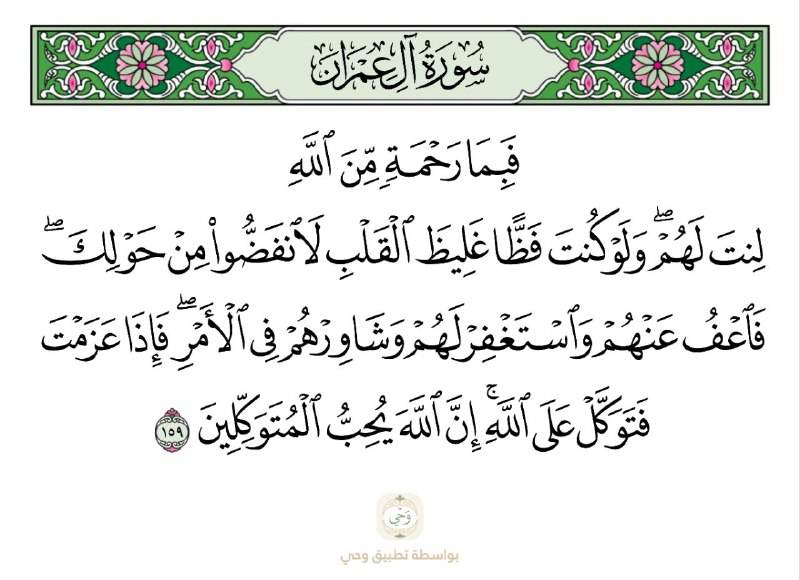 سُورَةُ آلِ عِمْرَان
فَبِمَا رَحْمَةٍ مِّنَ ٱللَّهِ
لِنتَ لَهُمْۖ وَلَوْ كُنتَ فَظًّا غَلِيظَ ٱلْقَلْبِ لَٱنفَضُّوا۟ مِنْ حَوْلِكَۖ
فَٱعْفُ عَنْهُمْ وَٱسْتَغْفِرْ لَهُمْ وَشَاوِرْهُمْ فِى ٱلْأَمْرِۖ فَإِذَا عَزَمْتَ
فَتَوَكَّلْ عَلَى ٱللَّهِۚ إِنَّ ٱللَّهَ يُحِبُّ ٱلْمُتَوَكِّلِينَ ١٥٩
وَحْي
بواسطة تطبيق وحي